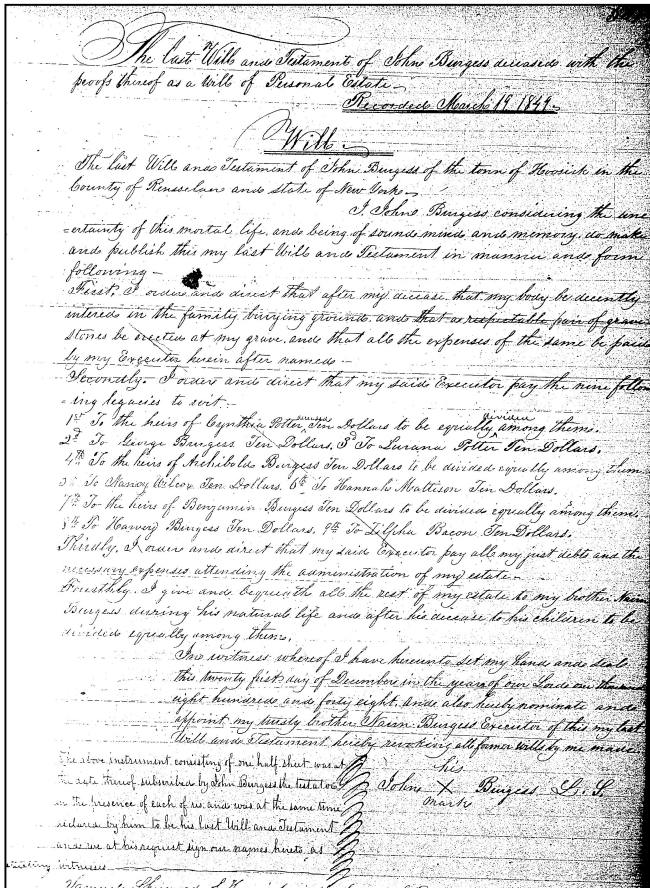 The last Will and Testament of John Burgess deceased with the
proofs thereof as a Will of Personal Estate
Recorded March 19 1849
Will
The last Will and Testament of John Burgess of the town of Hoosick in the
County of Rensselaer and state of New York
I, John Burgess considering the unc
=ertainty of this mortal life, and being of sound mind and memory, do make
and publish this my last Will and Testament in manner and form
following
First, I order and direct that after my decease that my body be decently
intered in the family burying ground, and that a respectable pair of grave
stones be erected at my grave, and that all the expenses of the same be paid
by my Executor herein after named
Secondly. I order and direct that my said Executor pay the nine follow
=ing legacies to wit
1st To the heirs of Cynthia Potter deceased Ten Dollars to be equally divided among them.
2d To George Burgess Ten Dollars, 3d To Lurana Potter Ten Dollars.
4th To the heirs of Archibald Burgess Ten Dollars to be divided equally among them
5th To Nancy Wilcox Ten Dollars. 6th To Hannah Mattison Ten Dollars.
7th To the heirs of Benjamin Burgess Ten Dollars to be divided equally among them.
8th To Burgess Ten Dollars, 9th To Zilpha Bacon Ten Dollars.
Thirdly, I order and direct that my said Executor pay all my just debts and the
necessary expenses attending the administration of my estate
Fourthly. I give and bequeath all the rest of my estate to my brother Nairn
Burgess during his natural life and after his decease to his children to be
divided equally among them.
In witness whereof I have hereunto set my hand and seal
this twenty first day of December in the year of our Lord one thousand
eight hundred and forty eight, and also hereby nominate and
appoint my trusty brother Nairn Burgess Executor of this my last
Will and Testament hereby revoking all former wills by me made
The above instrument consisting of one half sheet was at
the date thereof subscribed by John Burgess the testator
in the presence of each of us and was at the same time
declared by him to be his last Will and Testament
and we at his request sign our names hereto, as
attesting witnesses
his
John X Burgess L. S.
mark